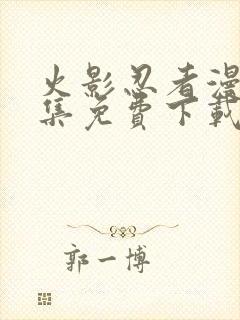 火影忍者漫
集免費下載
郭一博